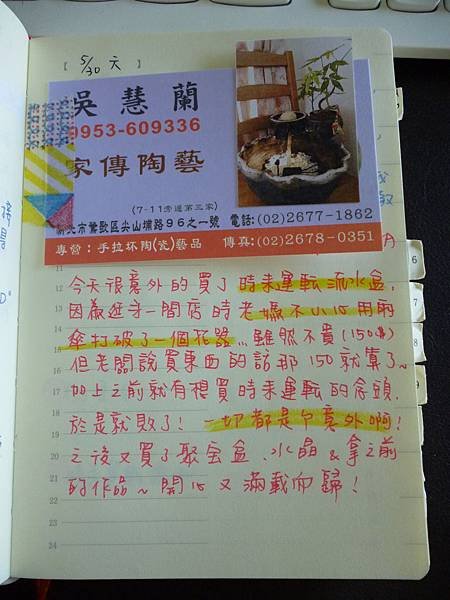 【 5/30 天 】
吳慧蘭
0953-609336
家傳陶藝
(7-11旁邊第三家)
新北市鶯歌區尖山埔路96之一號 電話:(02)2677-1862
專營:手拉坏陶(瓷)藝品 傳真:(02)2678-0351
月
今天很意外的買了時來運転流水盒,
因為逛另一間店時老媽不小心用雨
傘打破了一個花器...雖然不貴(150$)
但老闆說買東西的話那150就算了~
加上之前就有想買時來運転的念頭,
於是就敗了! 一切都是ㄉ意外啊!
之後又買了聚宝盒、水晶&拿之前
的作品~開心又滿載而歸!
6
7
8
9
12
13
14
15
16
17
18
19
20
21
22
23
24